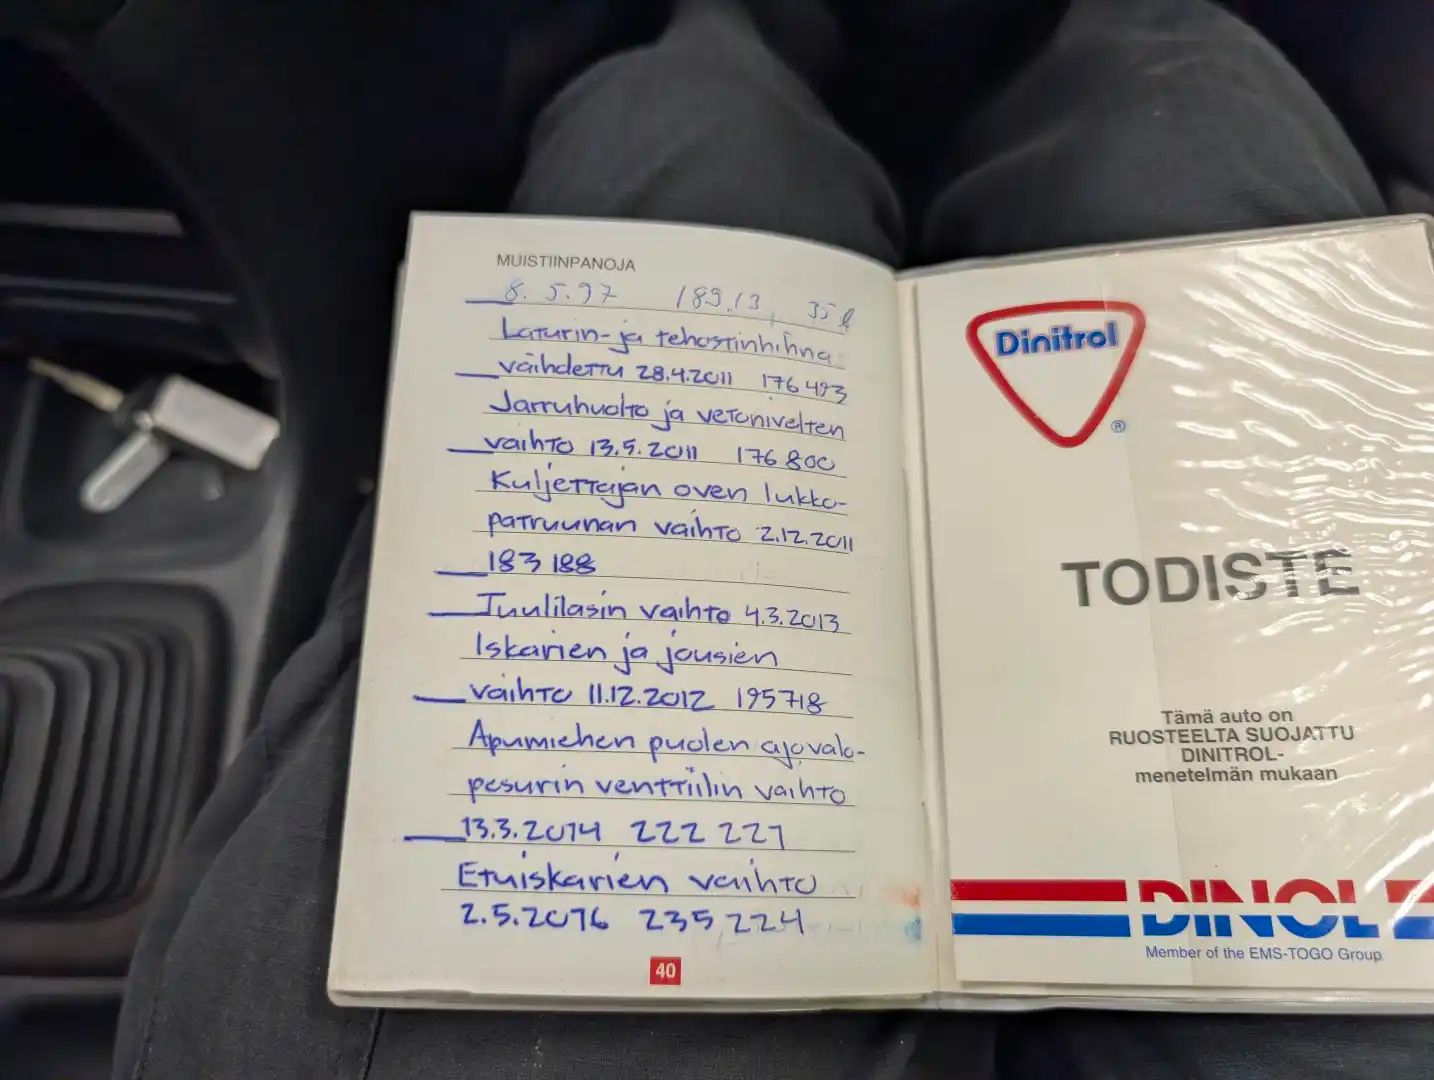 MUISTIINPANOJA
8. 5.97 189.13, 35 l
Laturin- ja tehostinhihna
vaihdettu 28.4.2011 176 493
Jarruhuolto ja vetonivelten
vaihto 13.5.2011 176 800
Kuljettajan oven lukko-
patruunan vaihto 2.12.2011
183 188
Tuulilasin vaihto 4.3.2013
Iskarien ja jousien
vaihto 11.12.2012 195718
Apumiehen puolen ajovalo-
pesurin venttiilin vaihto
13.3.2014 222 221
Etuiskarien vaihto
2.5.2016 235 224
40
Dinitrol
®
TODISTE
Tämä auto on
RUOSTEELTA SUOJATTU
DINITROL-
menetelmän mukaan
DINOL
Member of the EMS-TOGO Group